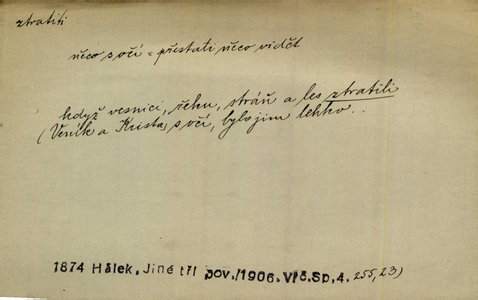 ztratiti
něco s očí = přestati něco vidět
když vesnici, řeku, stráň a les ztratili
(Věník a Krista) s očí, bylo jim lehko..
1874 Hálek, Jiné tři pov./1906. Vlč.Sp,4. 255,23)